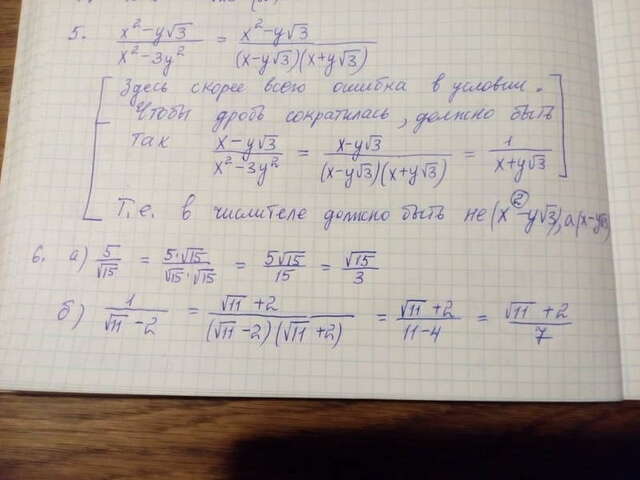 5. (x²-y√3)/(x²-3y²) = (x²-y√3)/((x-y√3)(x+y√3))
Здесь скорее всего ошибка в условии.
Чтобы дробь сократилась, должно быть
так (x-y√3)/(x²-3y²) = (x-y√3)/((x-y√3)(x+y√3)) = 1/(x+y√3)
Т.е. в числителе должно быть не (x²-y√3), а (x-y√3)
6. а) 5/√15 = 5·√15/(√15·√15) = 5√15/15 = √15/3
б) 1/(√11-2) = (√11+2)/((√11-2)(√11+2)) = (√11+2)/(11-4) = (√11+2)/7